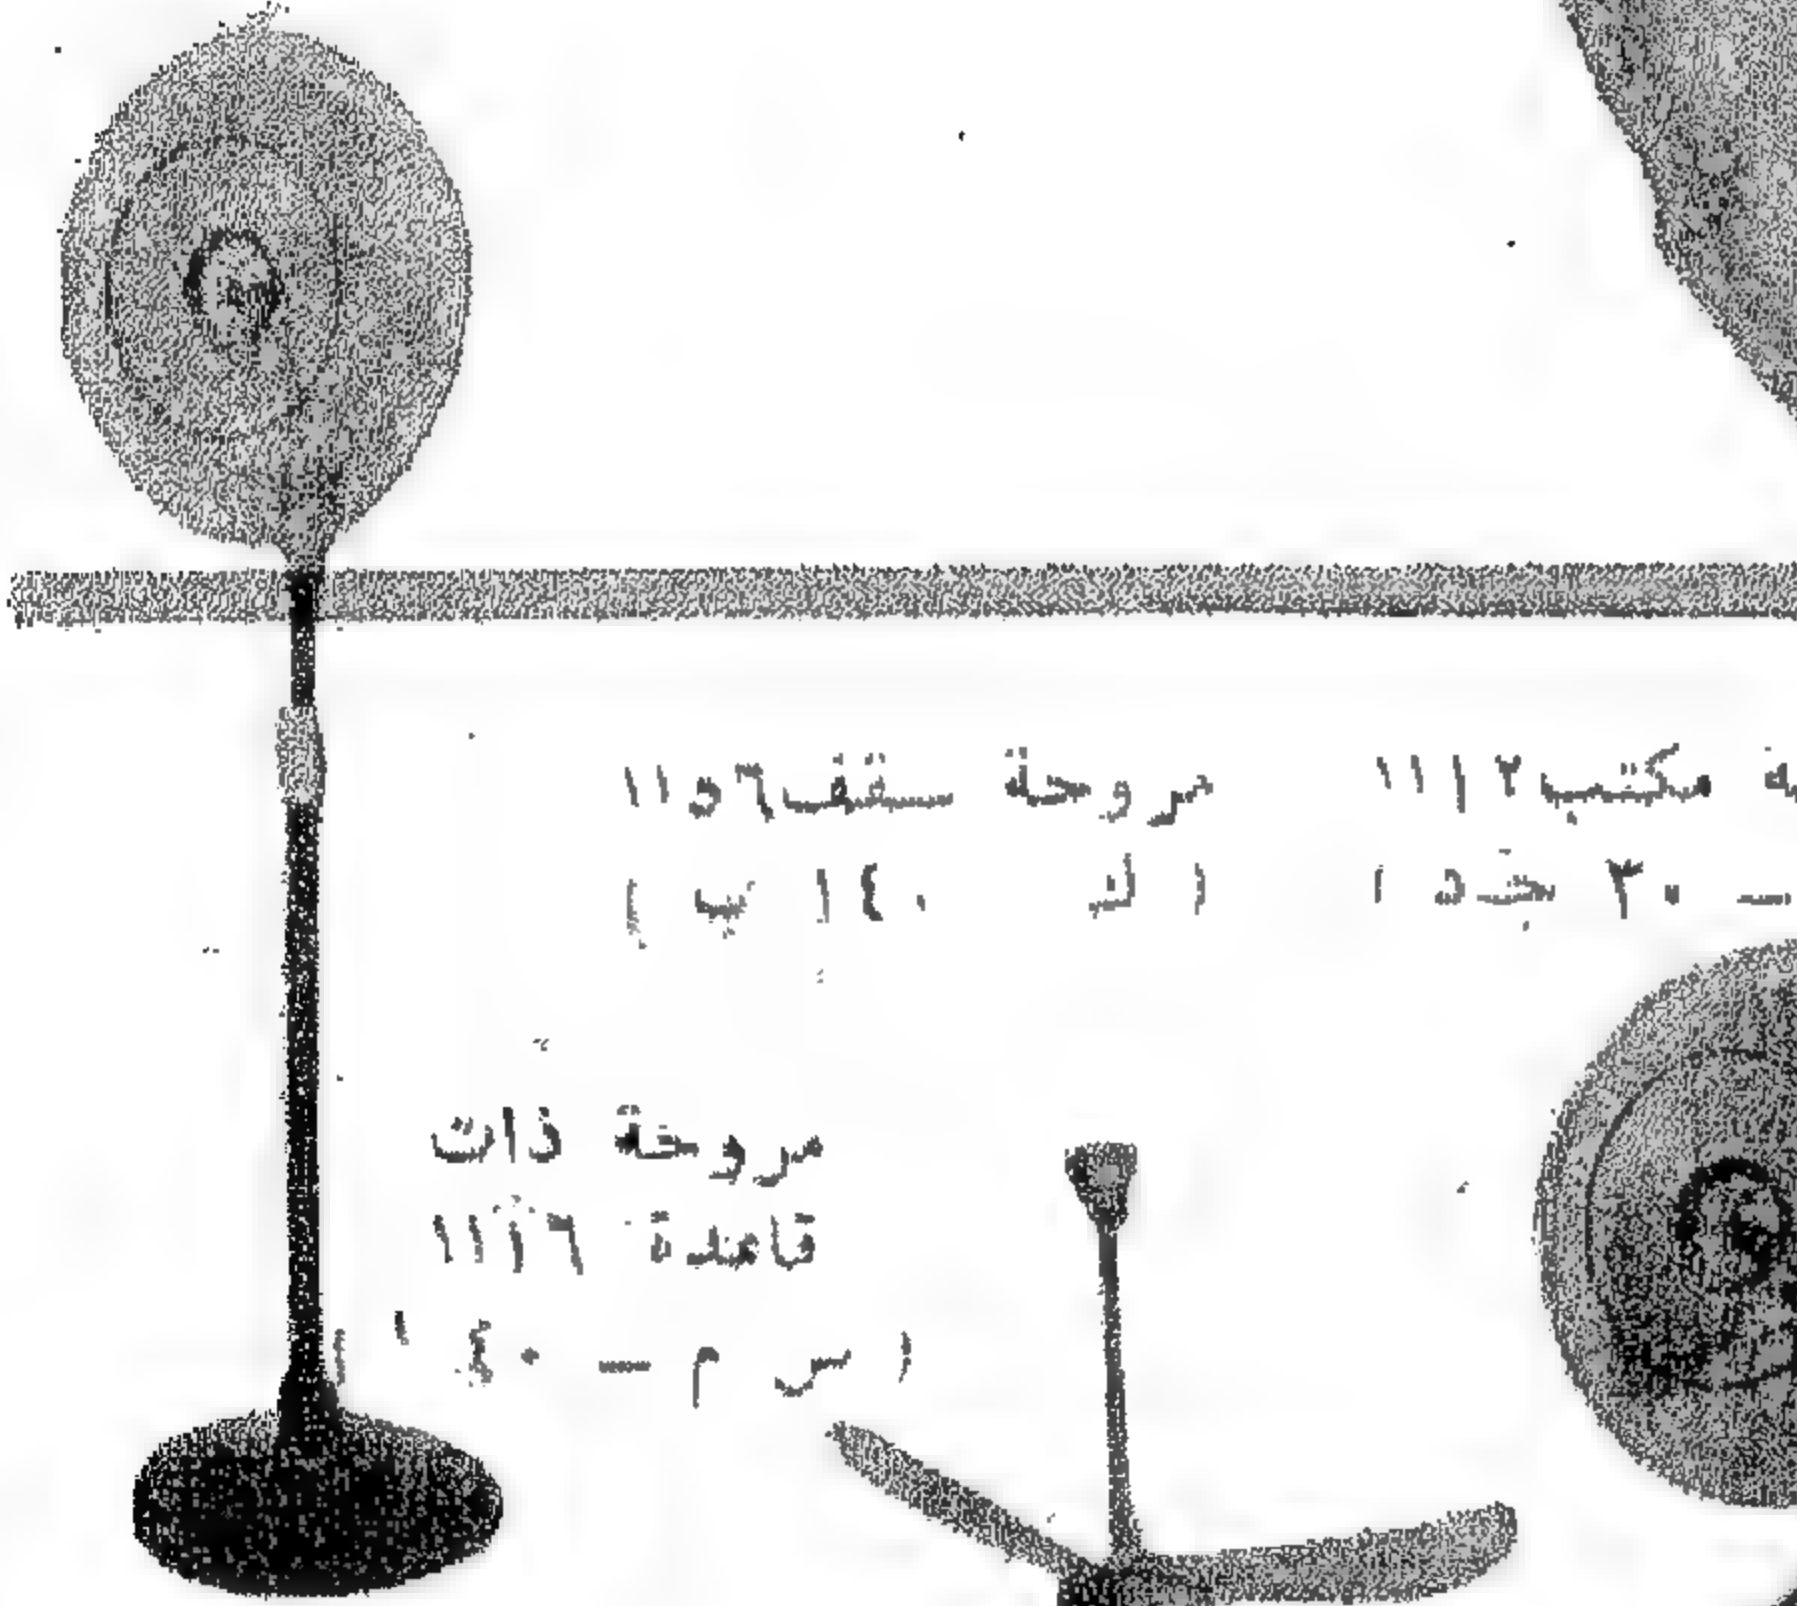 مكتب ١١١٢
٣٠ جـ د )
مروحة سقف ١١٥٦
( ك ١٤٠ ب )
مروحة ذات
قاعدة ١١١٦
( س م — ٤٠ ١ )